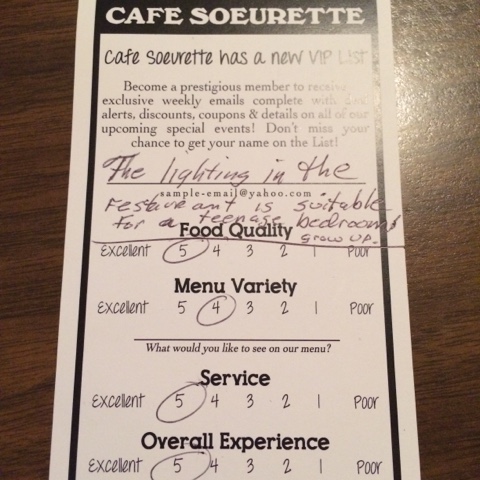 CAFE SOEURETTE
Cafe Soeurette has a new VIP List
Become a prestigious member to receive
exclusive weekly emails complete with
alerts, discounts, coupons & details on all of our
upcoming special events! Don't miss your
chance to get your name on the List!
The lighting in the
sample-email@yahoo.com
restaurant is suitable
for a teenage bedroom
grow up.
Food Quality
Excellent 5 4 3 2 1 Poor
Menu Variety
Excellent 5 4 3 2 1 Poor
What would you like to see on our menu?
Service
Excellent 5 4 3 2 1 Poor
Overall Experience
Excellent 5 4 3 2 1 Poor